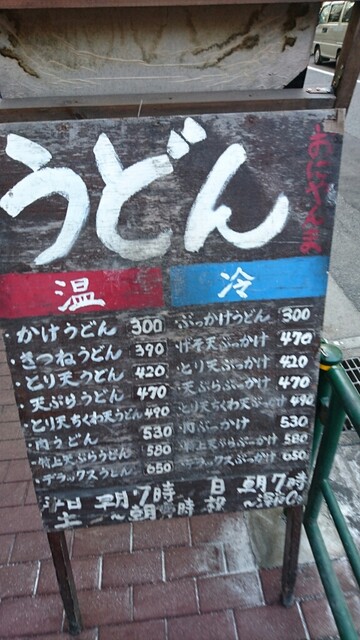 うどん
おにやんま
温
冷
・かけうどん 300
・きつねうどん 390
・とり天うどん 420
・天ぷらうどん 470
・とり天ちくわ天うどん 490
・肉うどん 530
・特上天ぷらうどん 580
・デラックスうどん 650
・ぶっかけうどん 300
・げそ天ぶっかけ 470
・とり天ぶっかけ 420
・天ぷらぶっかけ 470
・とり天ちくわ天ぶっかけ 490
・肉ぶっかけ 530
・特上天ぷらぶっかけ 580
・デラックスぶっかけ 650
朝7時
土 〜朝 時
日 朝7時
祝 〜